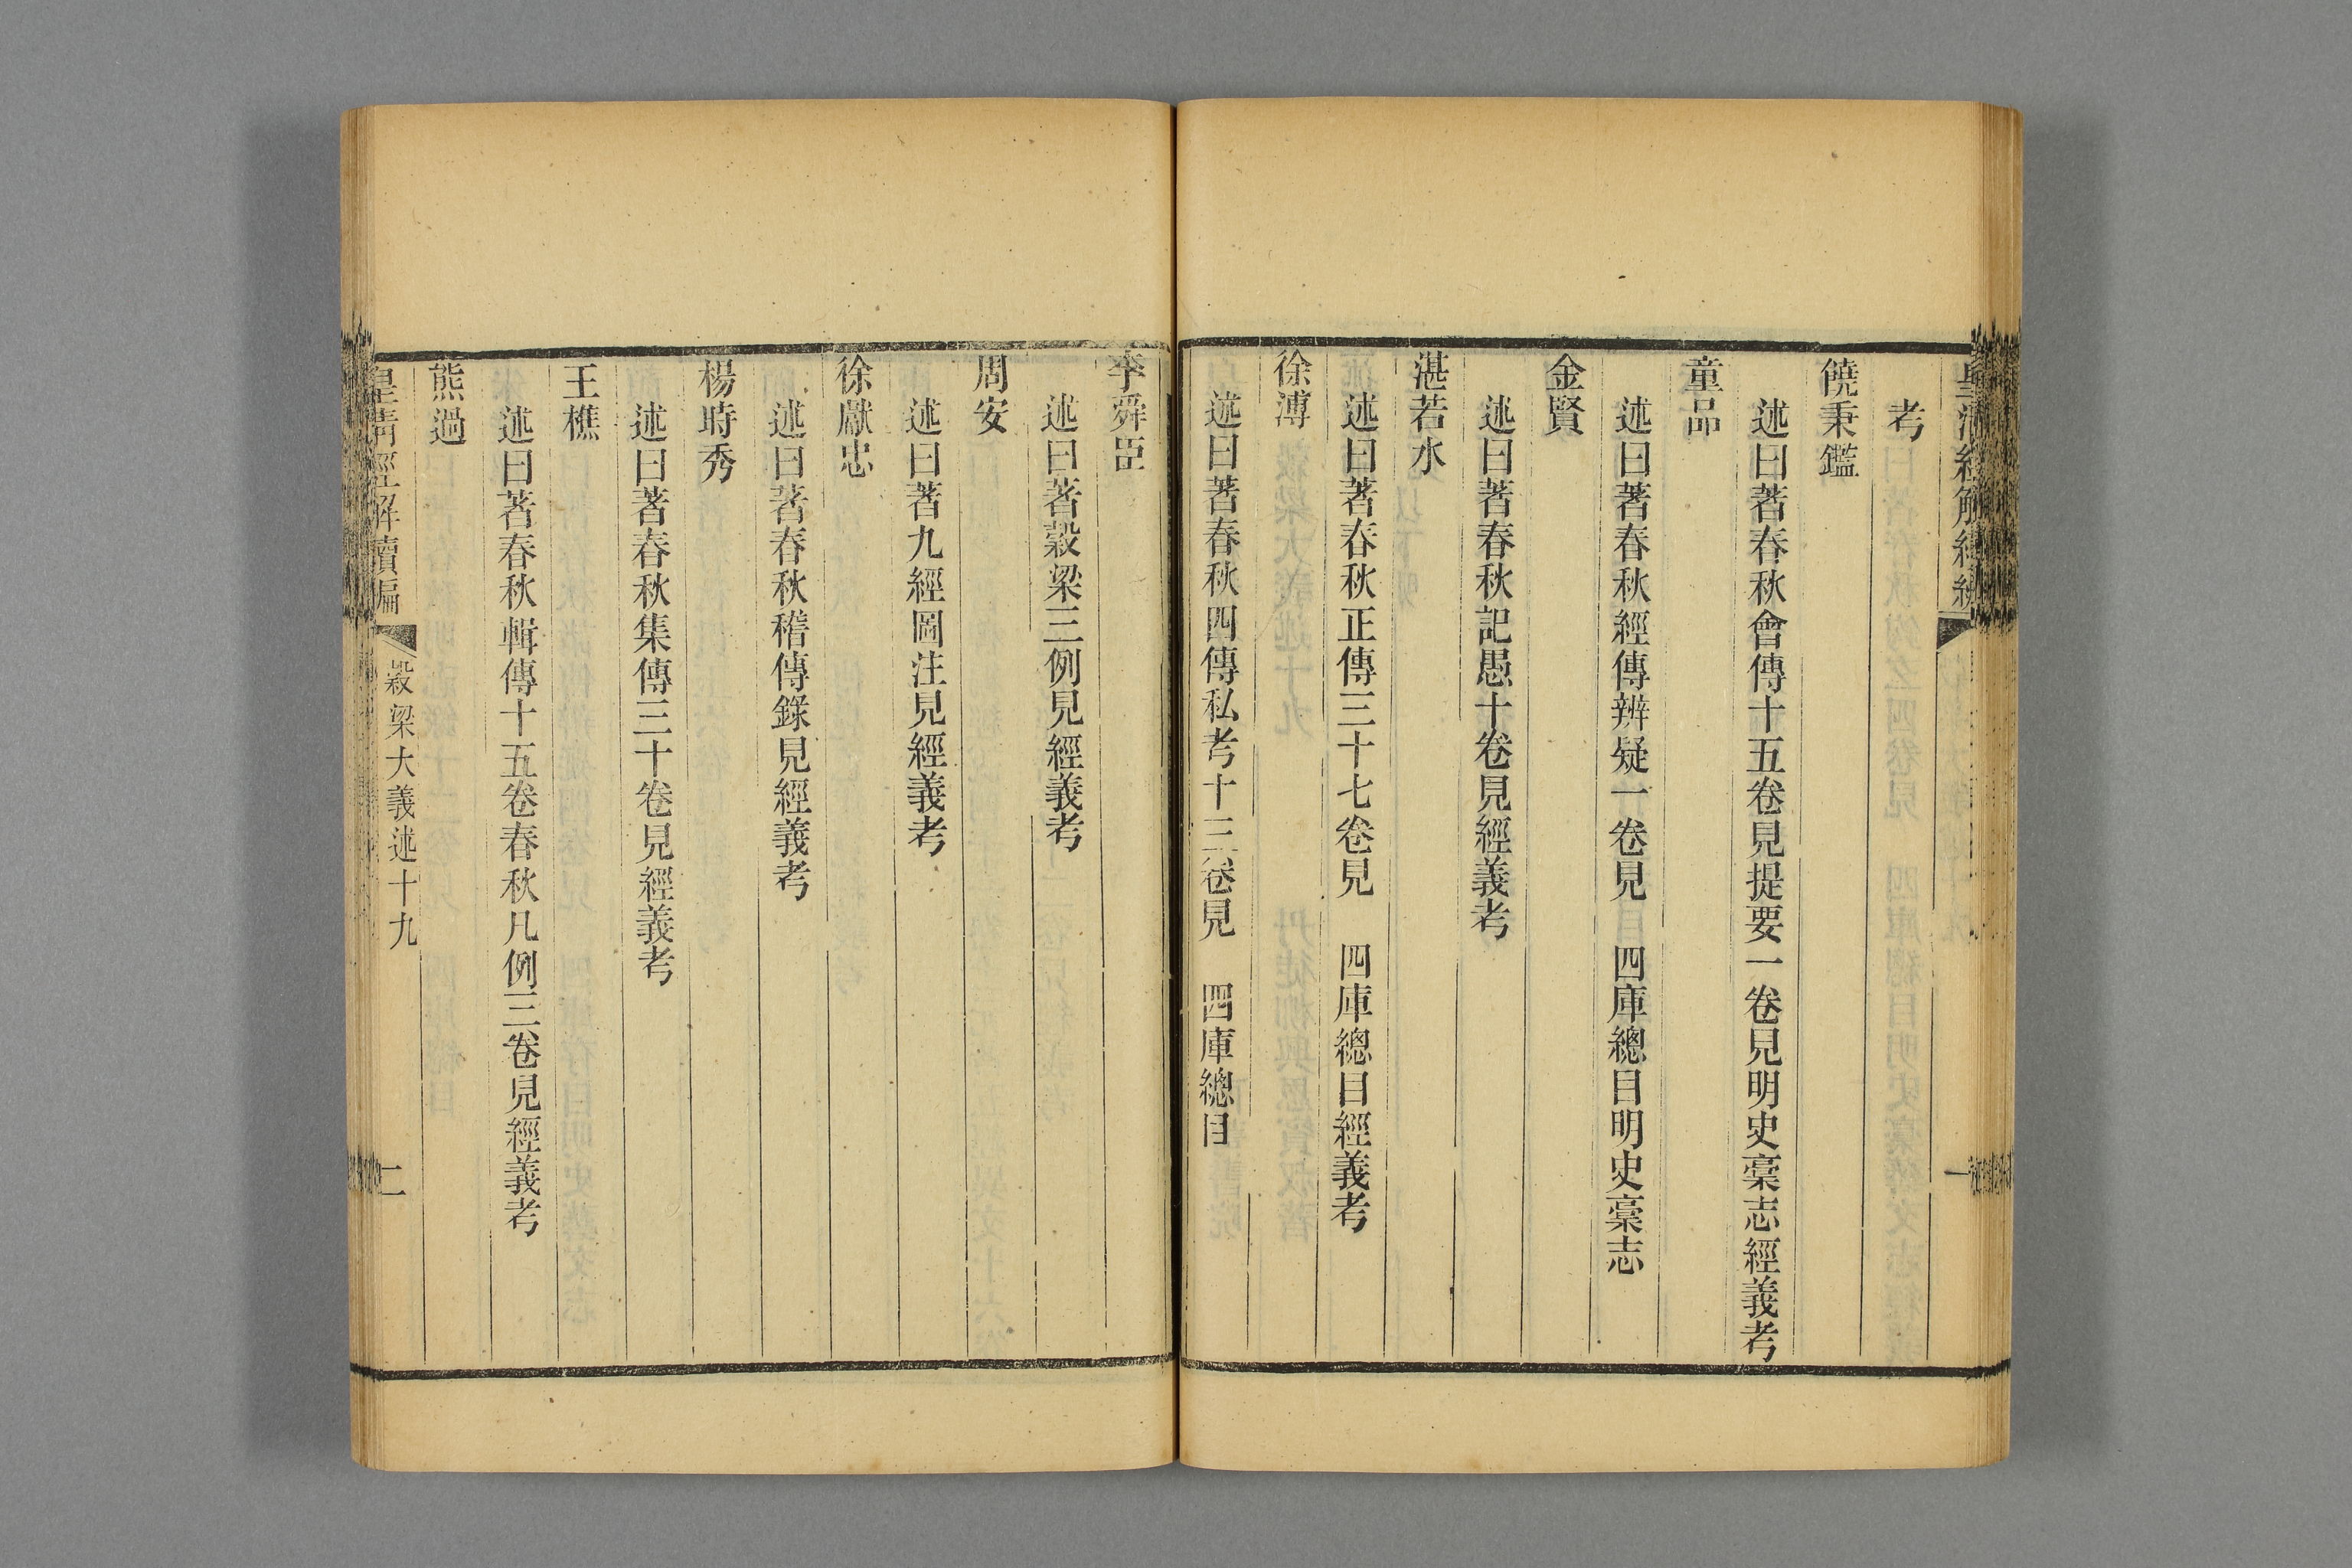 考
饒秉鑑
述曰著春秋會傳十五卷見提要一卷見明史稾志經義考
童品
述曰著春秋經傳辨疑一卷見　四庫總目明史稾志
金賢
述曰著春秋記愚十卷見經義考
湛若水
述曰著春秋正傳三十七卷見　四庫總目經義考
徐溥
述曰著春秋四傳私考十三卷見　四庫總目
李舜臣
述曰著穀梁三例見經義考
周安
述曰著九經圖注見經義考
徐獻忠
述曰著春秋稽傳錄見經義考
楊時秀
述曰著春秋集傳三十卷見經義考
王樵
述曰著春秋輯傳十五卷春秋凡例三卷見經義考
熊過
皇清經解續編
穀梁大義述十九
二